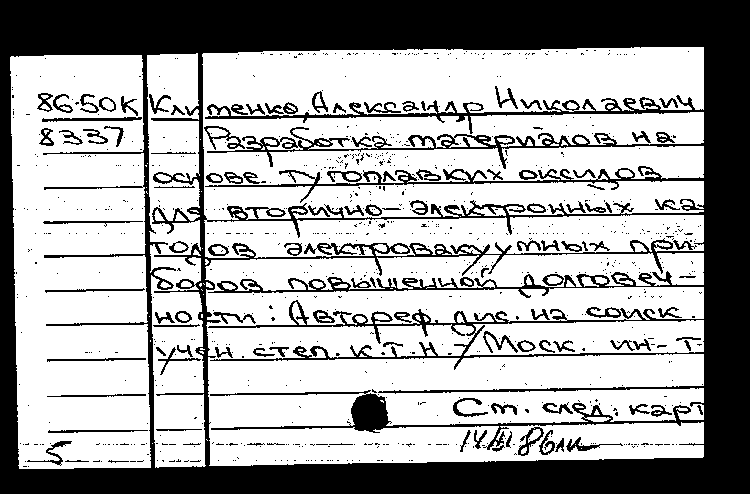 86-50К Клименко, Александр Николаевич
8337 Разработка материалов на
основе тугоплавких оксидов
для вторично-электронных ка-
тодов электровакуумных при-
боров повышенной долговеч-
ности: Автореф. дис. на соиск.
учен. степ. к.т.н. - / Моск. ин-т
См. след. карт
14/III 86
5